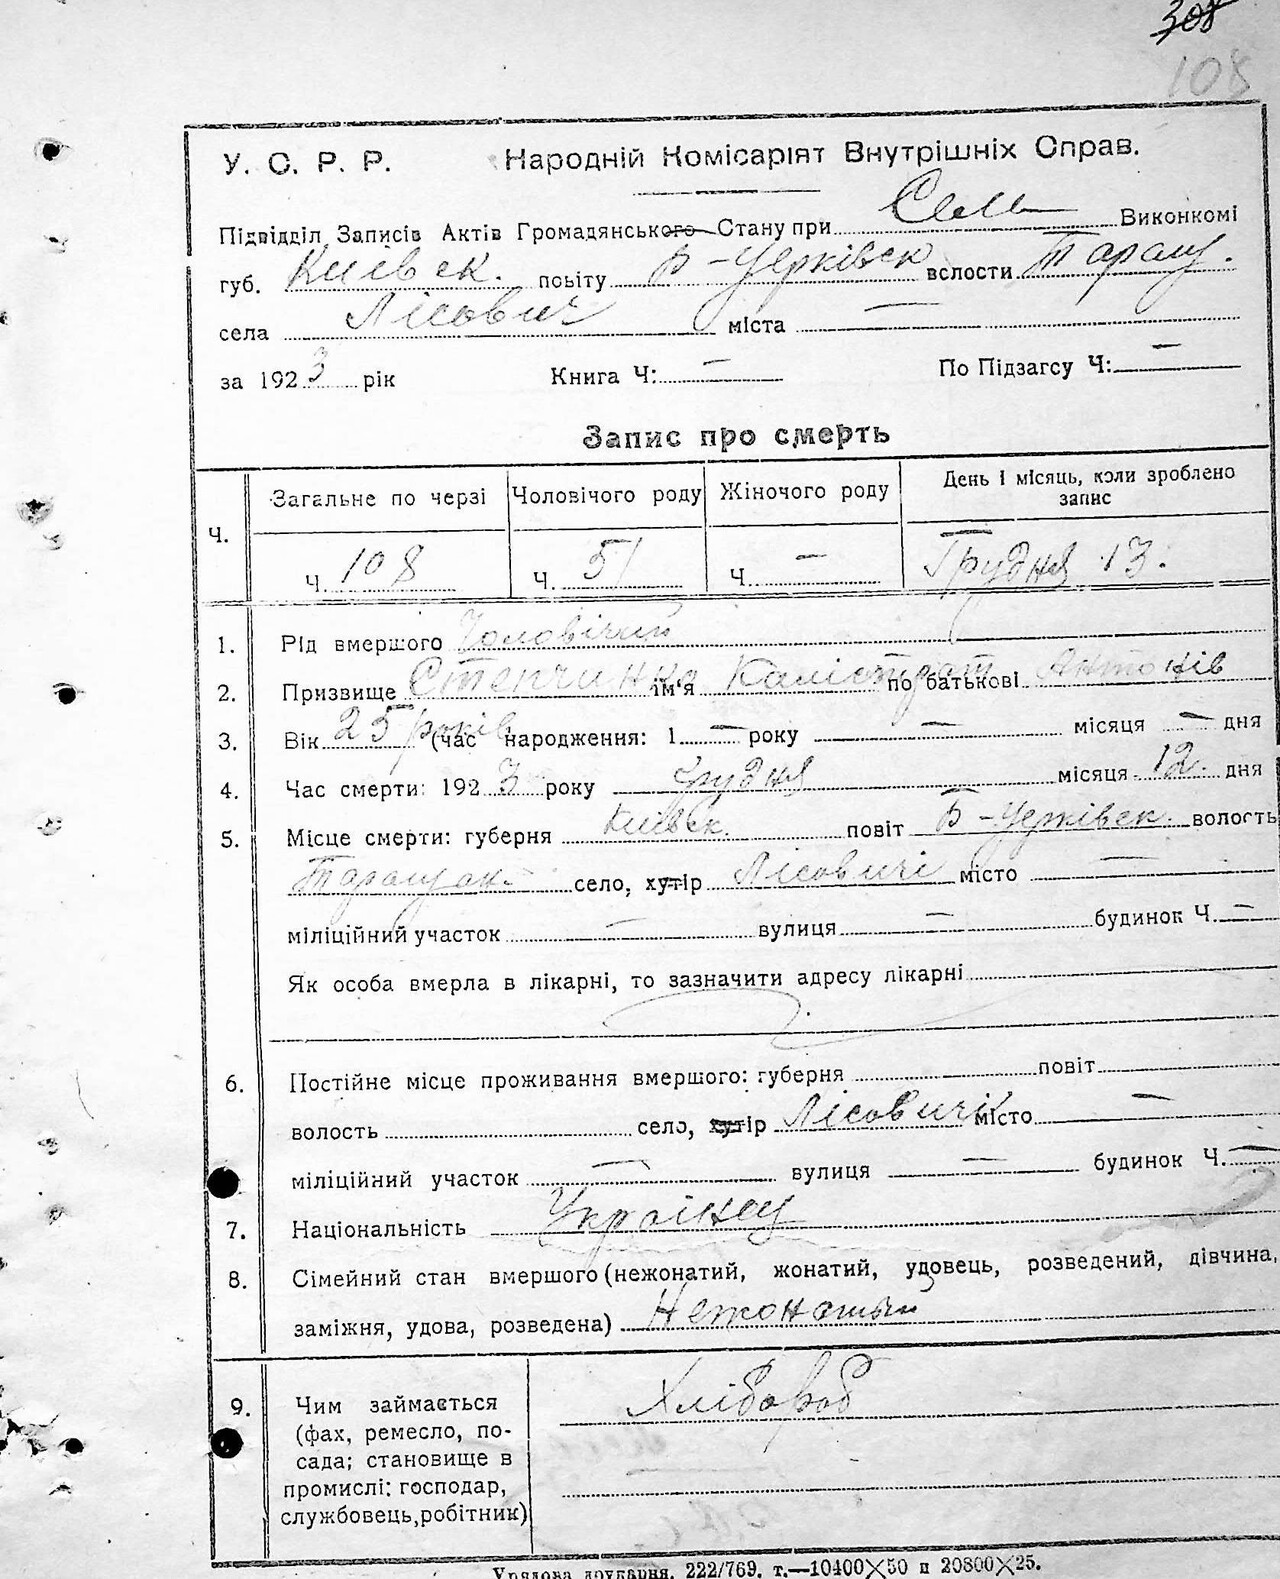 308
108
У. С. Р. Р. Народній Комісаріят Внутрішніх Справ.
Підвідділ Записів Актів Громадянського Стану при Сель Виконкомі
губ. Київськ. повіту Б-Церківск вслости Таращ.
села Лісович міста —
за 1923 рік Книга Ч: — По Підзагсу Ч: —
Запис про смерть
Ч. Загальне по черзі Чоловічого роду Жіночого роду День і місяць, коли зроблено запис
Ч. 108 Ч. 51 Ч. — Грудня 13.
1. Рід вмершого Чоловічий
2. Призвище Степчинко ім'я Калістрат по батькові Антонів
3. Вік 25 років (час народження: 1 — року — місяця — дня
4. Час смерти: 1923 року грудня місяця 12. дня
5. Місце смерти: губерня Київск. повіт Б-Церківск. волость
Таращан. село, хутір Лісовичі місто —
міліційний участок — вулиця — будинок Ч. —
Як особа вмерла в лікарні, то зазначити адресу лікарні
6. Постійне місце проживання вмершого: губерня повіт
волость село, хутір Лісовичі місто —
міліційний участок — вулиця — будинок Ч. —
7. Національність Українец
8. Сімейний стан вмершого (нежонатий, жонатий, удовець, розведений, дівчина,
заміжня, удова, розведена) Нежонатый
9. Чим займається Хлібороб
(фах, ремесло, по-
сада; становище в
промислі: господар,
службовець, робітник)
Урядова друкарня. 222/769. т.—10400×50 п 20800×25.